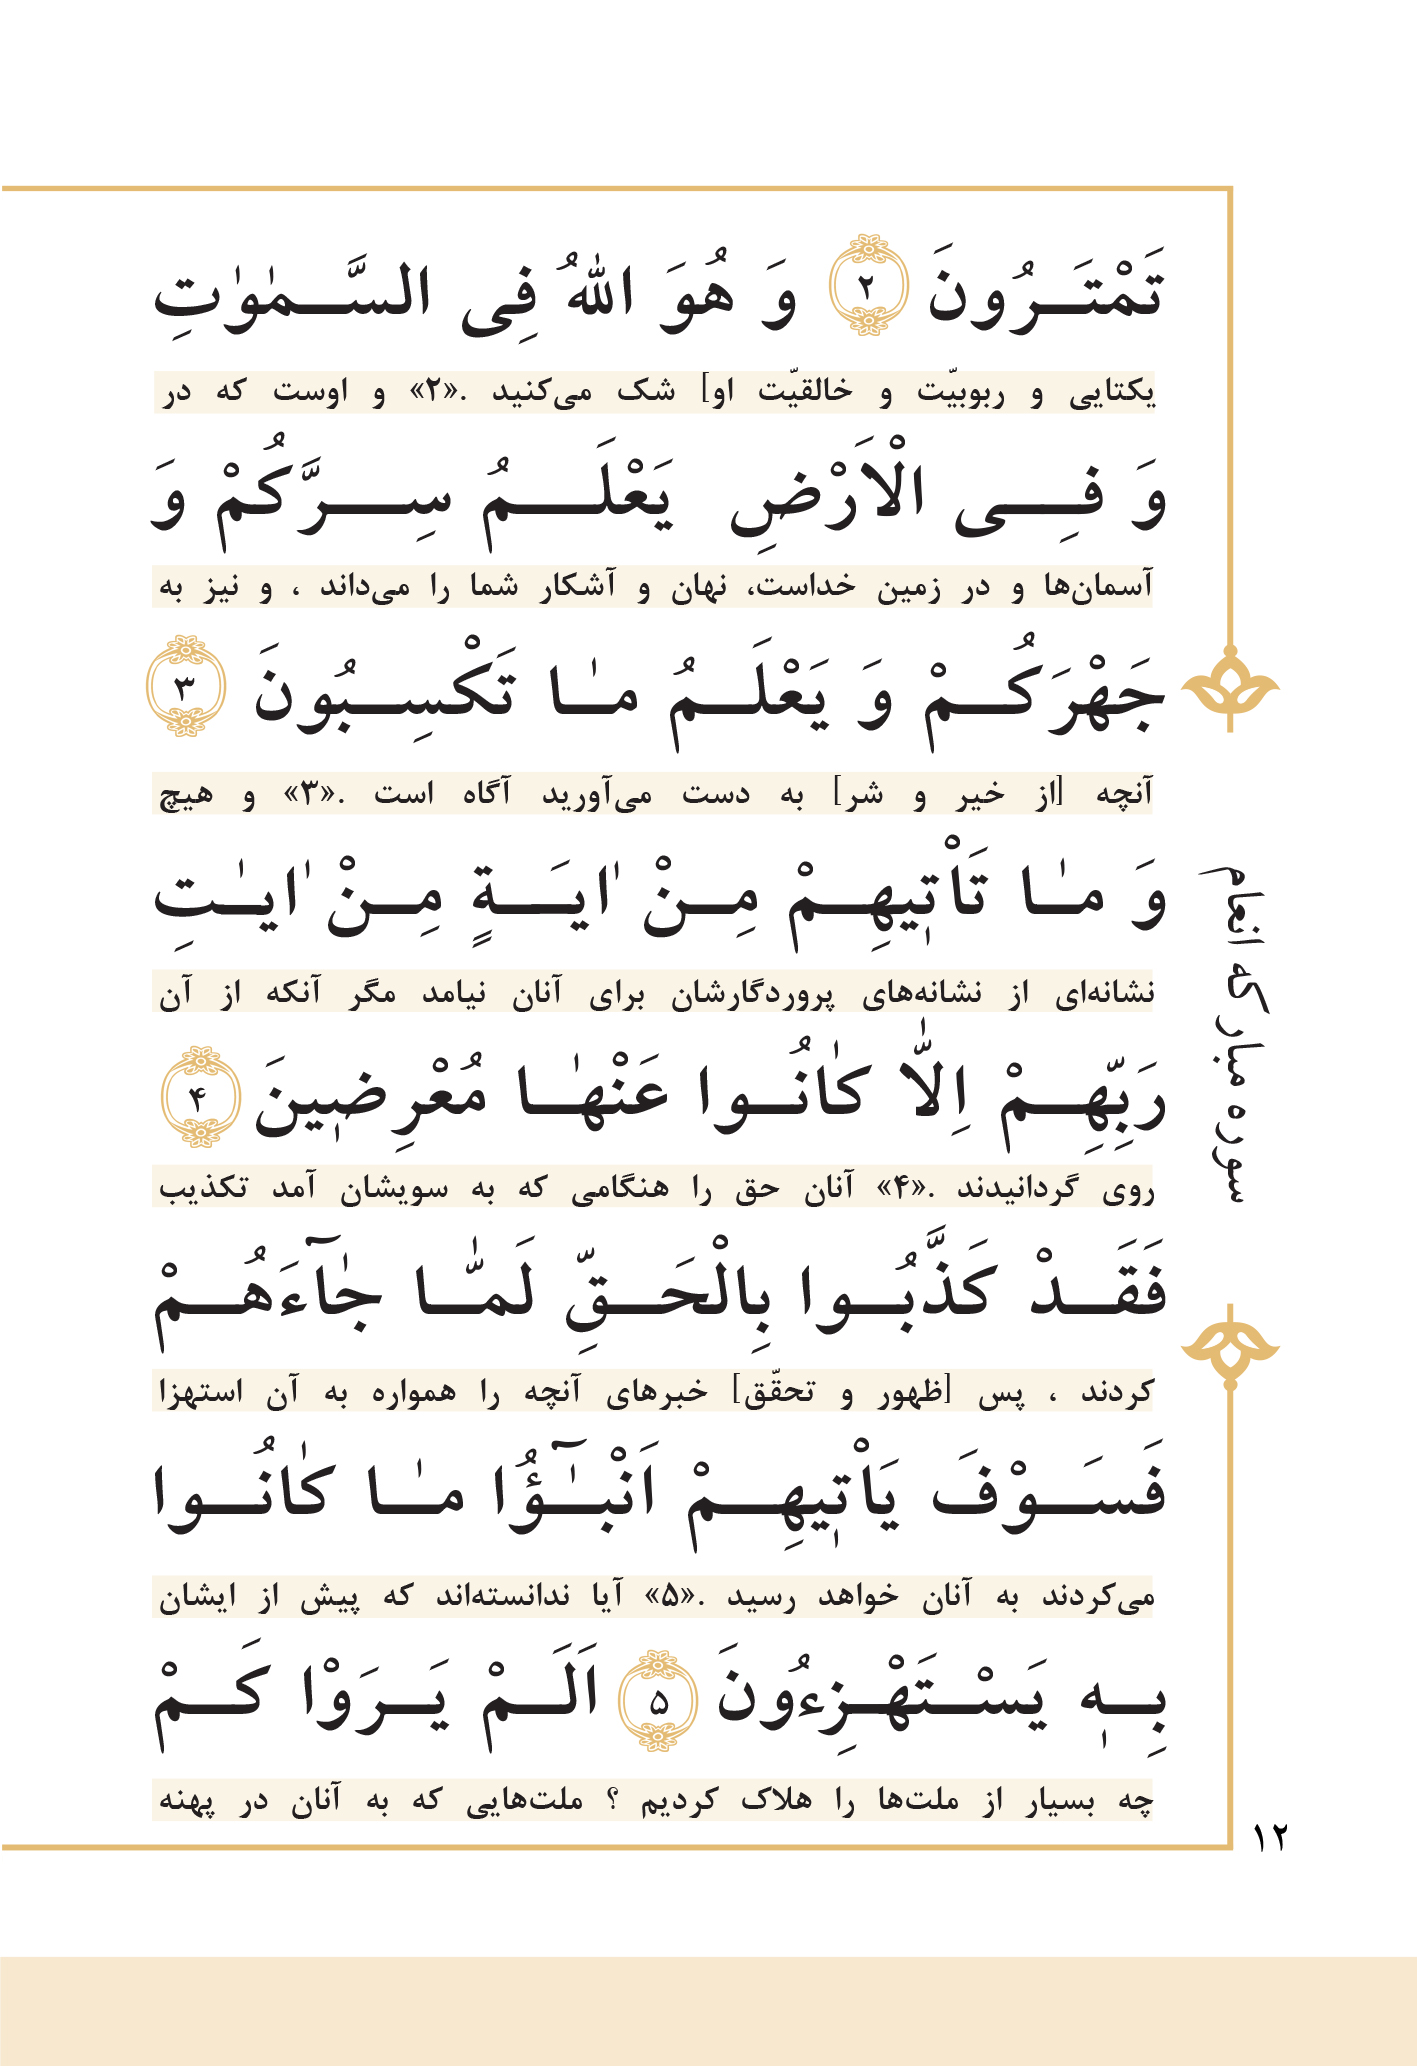 تَمْتَرُونَ ﴿۲﴾ وَ هُوَ اللّٰهُ فِی السَّمٰوٰتِ
یکتایی و ربوبیّت و خالقیّت او] شک می‌کنید .«۲» و اوست که در
وَ فِی الْاَرْضِ یَعْلَمُ سِرَّکُمْ وَ
آسمان‌ها و در زمین خداست، نهان و آشکار شما را می‌داند ، و نیز به
جَهْرَکُمْ وَ یَعْلَمُ مٰا تَکْسِبُونَ ﴿۳﴾
آنچه [از خیر و شر] به دست می‌آورید آگاه است .«۳» و هیچ
وَ مٰا تَاْتٖیهِمْ مِنْ اٰیَةٍ مِنْ اٰیٰتِ
نشانه‌ای از نشانه‌های پروردگارشان برای آنان نیامد مگر آنکه از آن
رَبِّهِمْ اِلّٰا کٰانُوا عَنْهٰا مُعْرِضٖینَ ﴿۴﴾
روی گردانیدند .«۴» آنان حق را هنگامی که به سویشان آمد تکذیب
فَقَدْ کَذَّبُوا بِالْحَقِّ لَمّٰا جٰآءَهُمْ
کردند ، پس [ظهور و تحقّق] خبرهای آنچه را همواره به آن استهزا
فَسَوْفَ یَاْتٖیهِمْ اَنْبٰٓؤُا مٰا کٰانُوا
می‌کردند به آنان خواهد رسید .«۵» آیا ندانسته‌اند که پیش از ایشان
بِهٖ یَسْتَهْزِءُونَ ﴿۵﴾ اَلَمْ یَرَوْا کَمْ
چه بسیار از ملت‌ها را هلاک کردیم ؟ ملت‌هایی که به آنان در پهنه
سوره مبارکه انعام
۱۲